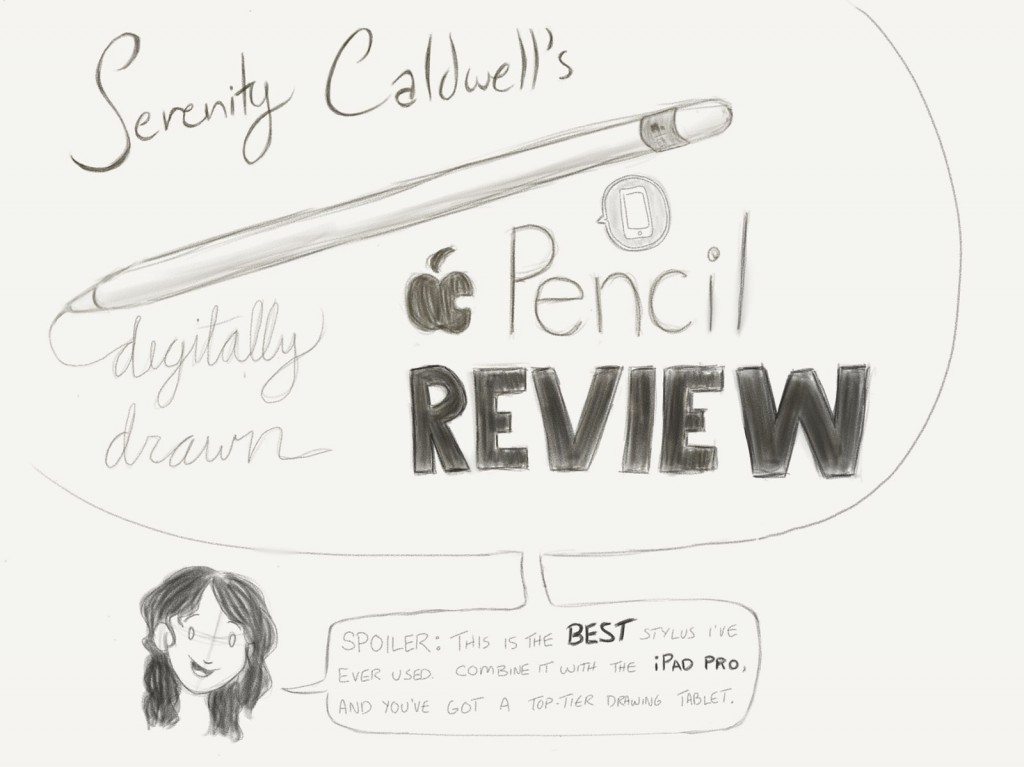 Serenity Caldwell's
Pencil
digitally
drawn
REVIEW
SPOILER: THIS IS THE BEST STYLUS I'VE
EVER USED. COMBINE IT WITH THE iPAD PRO,
AND YOU'VE GOT A TOP-TIER DRAWING TABLET.